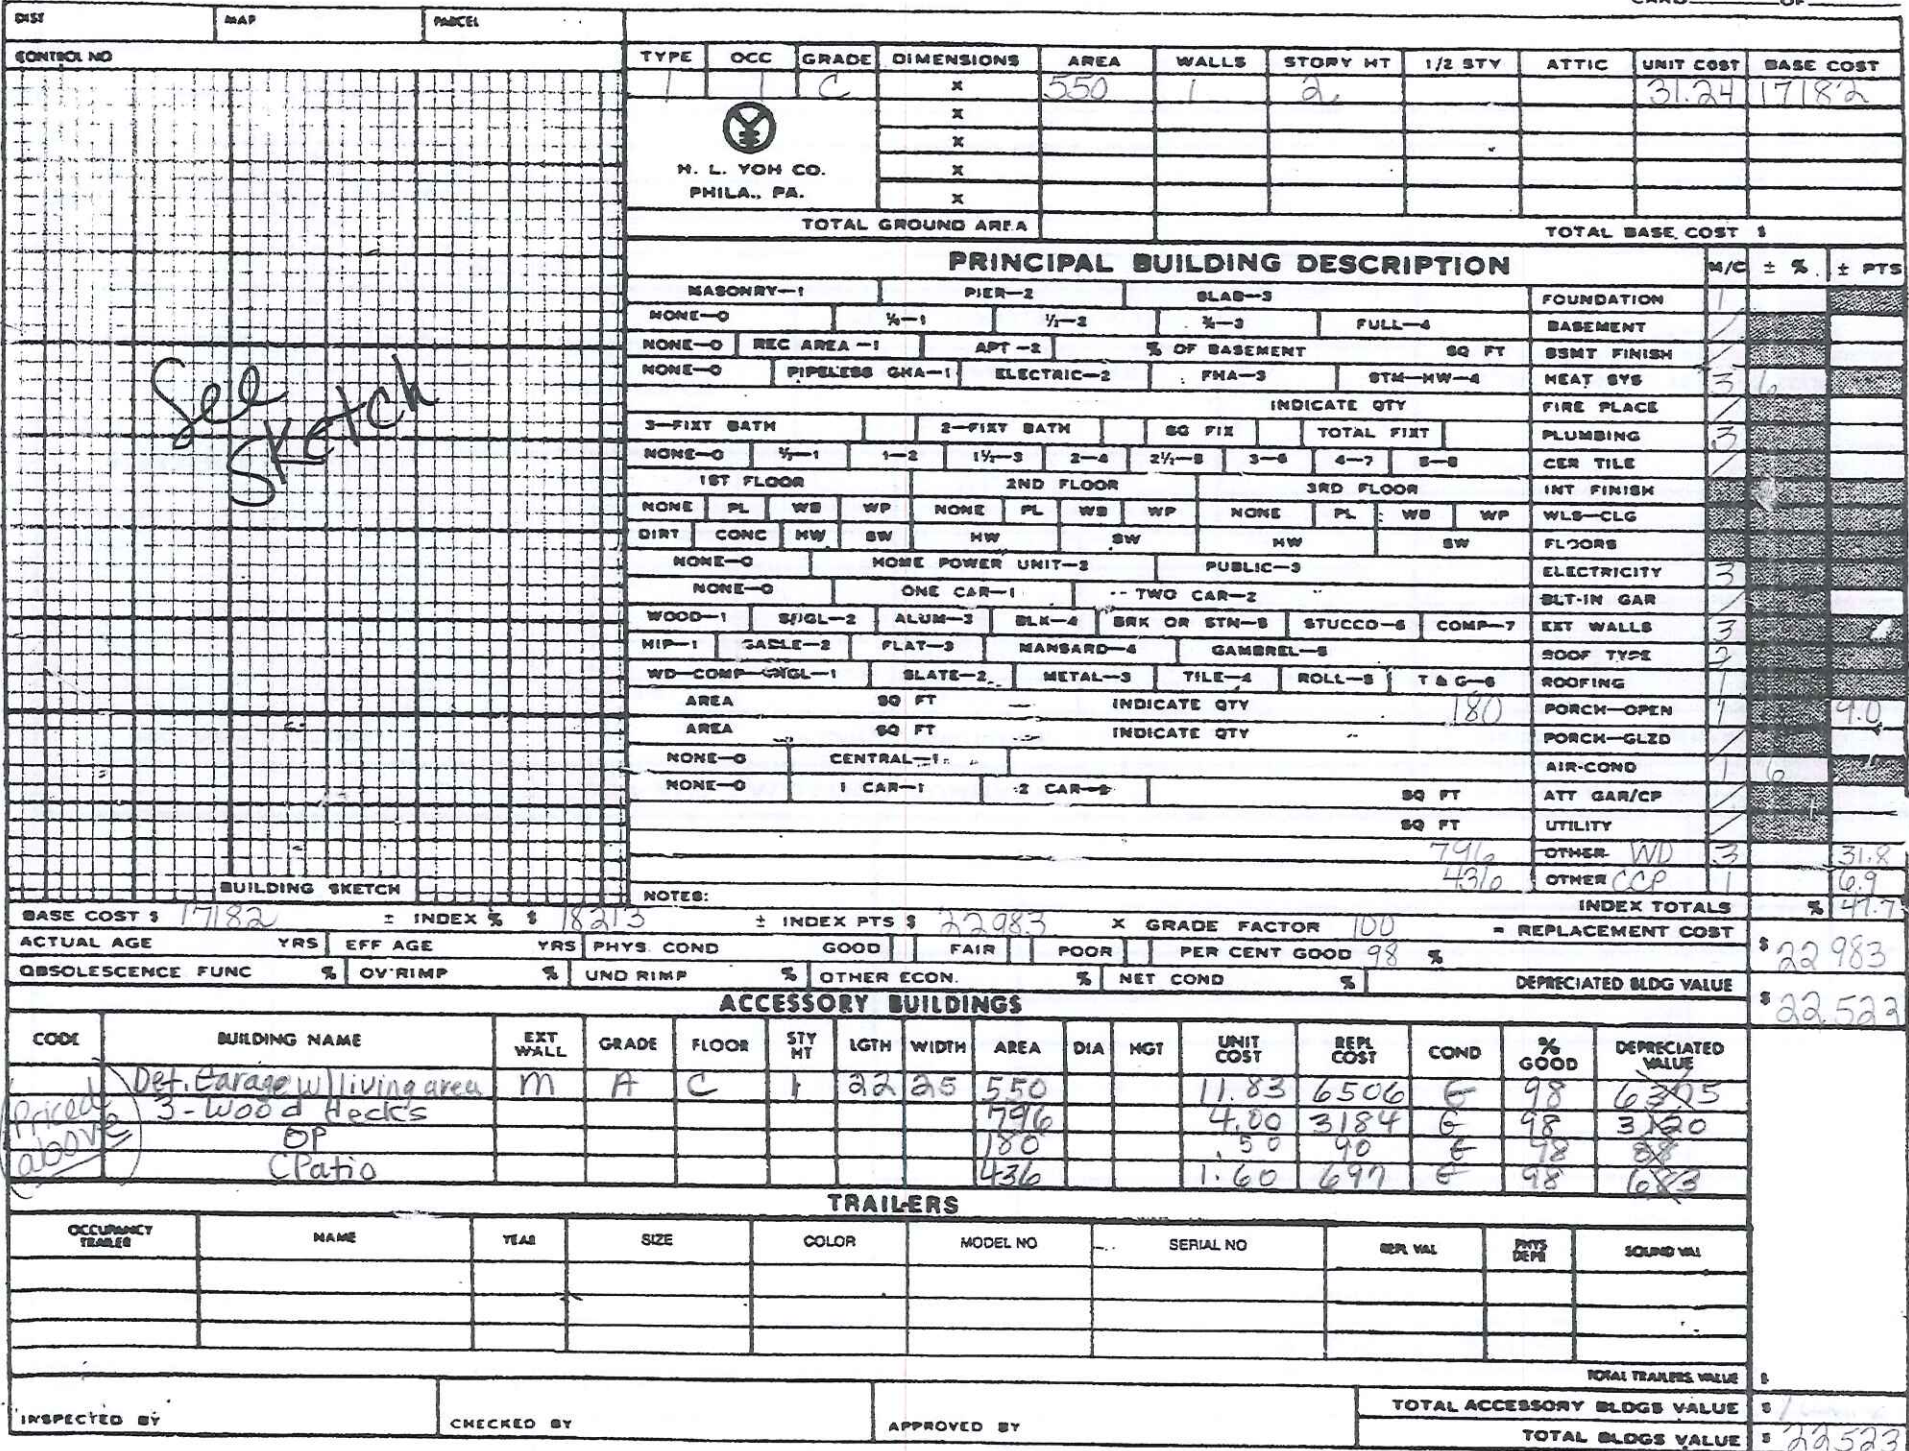 CARD OF
DIST MAP PARCEL
CONTROL NO
TYPE OCC GRADE DIMENSIONS AREA WALLS STORY HT 1/2 STY ATTIC UNIT COST BASE COST
1 1 C x 550 1 2 31.24 17182
x
x
x
x
H. L. YOH CO.
PHILA., PA.
TOTAL GROUND AREA TOTAL BASE COST $
PRINCIPAL BUILDING DESCRIPTION M/C ± % ± PTS
MASONRY—1 PIER—2 SLAB—3 FOUNDATION 1
NONE—0 ¼—1 ½—2 ¾—3 FULL—4 BASEMENT /
NONE—0 REC AREA—1 APT—2 % OF BASEMENT SQ FT BSMT FINISH /
NONE—0 PIPELESS GHA—1 ELECTRIC—2 FHA—3 STM—HW—4 HEAT SYS 3 6
INDICATE QTY FIRE PLACE /
3—FIXT BATH 2—FIXT BATH SG FIX TOTAL FIXT PLUMBING 3
NONE—0 ½—1 1—2 1½—3 2—4 2½—5 3—6 4—7 5—8 CER TILE /
1ST FLOOR 2ND FLOOR 3RD FLOOR INT FINISH
NONE PL WB WP NONE PL WB WP NONE PL WB WP WLS—CLG
DIRT CONC HW SW HW SW HW SW FLOORS
NONE—0 HOME POWER UNIT—2 PUBLIC—3 ELECTRICITY 3
NONE—0 ONE CAR—1 TWO CAR—2 BLT-IN GAR /
WOOD—1 SHGL—2 ALUM—3 BLK—4 BRK OR STN—5 STUCCO—6 COMP—7 EXT WALLS 3
HIP—1 GABLE—2 FLAT—3 MANSARD—4 GAMBREL—5 ROOF TYPE 2
WD—COMP—SHGL—1 SLATE—2 METAL—3 TILE—4 ROLL—5 T & G—6 ROOFING 1
AREA SQ FT INDICATE QTY 180 PORCH—OPEN 1 9.0
AREA SQ FT INDICATE QTY PORCH—GLZD /
NONE—0 CENTRAL—1 AIR-COND 1 6
NONE—0 1 CAR—1 2 CAR—2 SQ FT ATT GAR/CP /
SQ FT UTILITY /
796 OTHER WD 3 31.8
436 OTHER CCP 1 6.9
See
Sketch
BUILDING SKETCH
NOTES:
INDEX TOTALS % 47.7
BASE COST $ 17182 ± INDEX % $ 18213 ± INDEX PTS $ 22983 X GRADE FACTOR 100 = REPLACEMENT COST
$ 22983
ACTUAL AGE YRS EFF AGE YRS PHYS. COND GOOD FAIR POOR PER CENT GOOD 98 %
OBSOLESCENCE FUNC % OV'RIMP % UND RIMP % OTHER ECON. % NET COND % DEPRECIATED BLDG VALUE
$ 22523
ACCESSORY BUILDINGS
CODE BUILDING NAME EXT WALL GRADE FLOOR STY HT LGTH WIDTH AREA DIA HGT UNIT COST REPL COST COND % GOOD DEPRECIATED VALUE
Det. Garage w/living area M A C 1 22 25 550 11.83 6506 G 98 6375
3-Wood Decks 796 4.00 3184 G 98 3120
OP 180 .50 90 G 98 88
CPatio 436 1.60 697 G 98 683
Priced
above
TRAILERS
OCCUPANCY TRAILER NAME YEAR SIZE COLOR MODEL NO SERIAL NO REPL VAL PHYS DEPR SOUND VAL
TOTAL TRAILERS VALUE $
INSPECTED BY CHECKED BY APPROVED BY TOTAL ACCESSORY BLDGS VALUE $
TOTAL BLDGS VALUE $ 22523